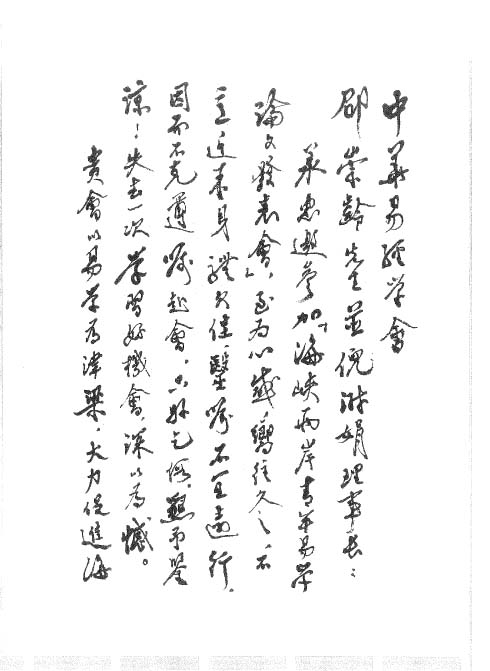 中華易經學會
邵崇齡先生並倪淑娟理事長：
承惠邀參加「海峽兩岸青年易学
論文發表會」，至为心感，嚮往久之，不
意近来身體欠佳，醫嘱不宜遠行，
因而不克遵嘱赴會。只好乞假，懇予鑒
諒！失去一次学習好機會，深以為憾。
貴會以易学為津梁，大力促進海